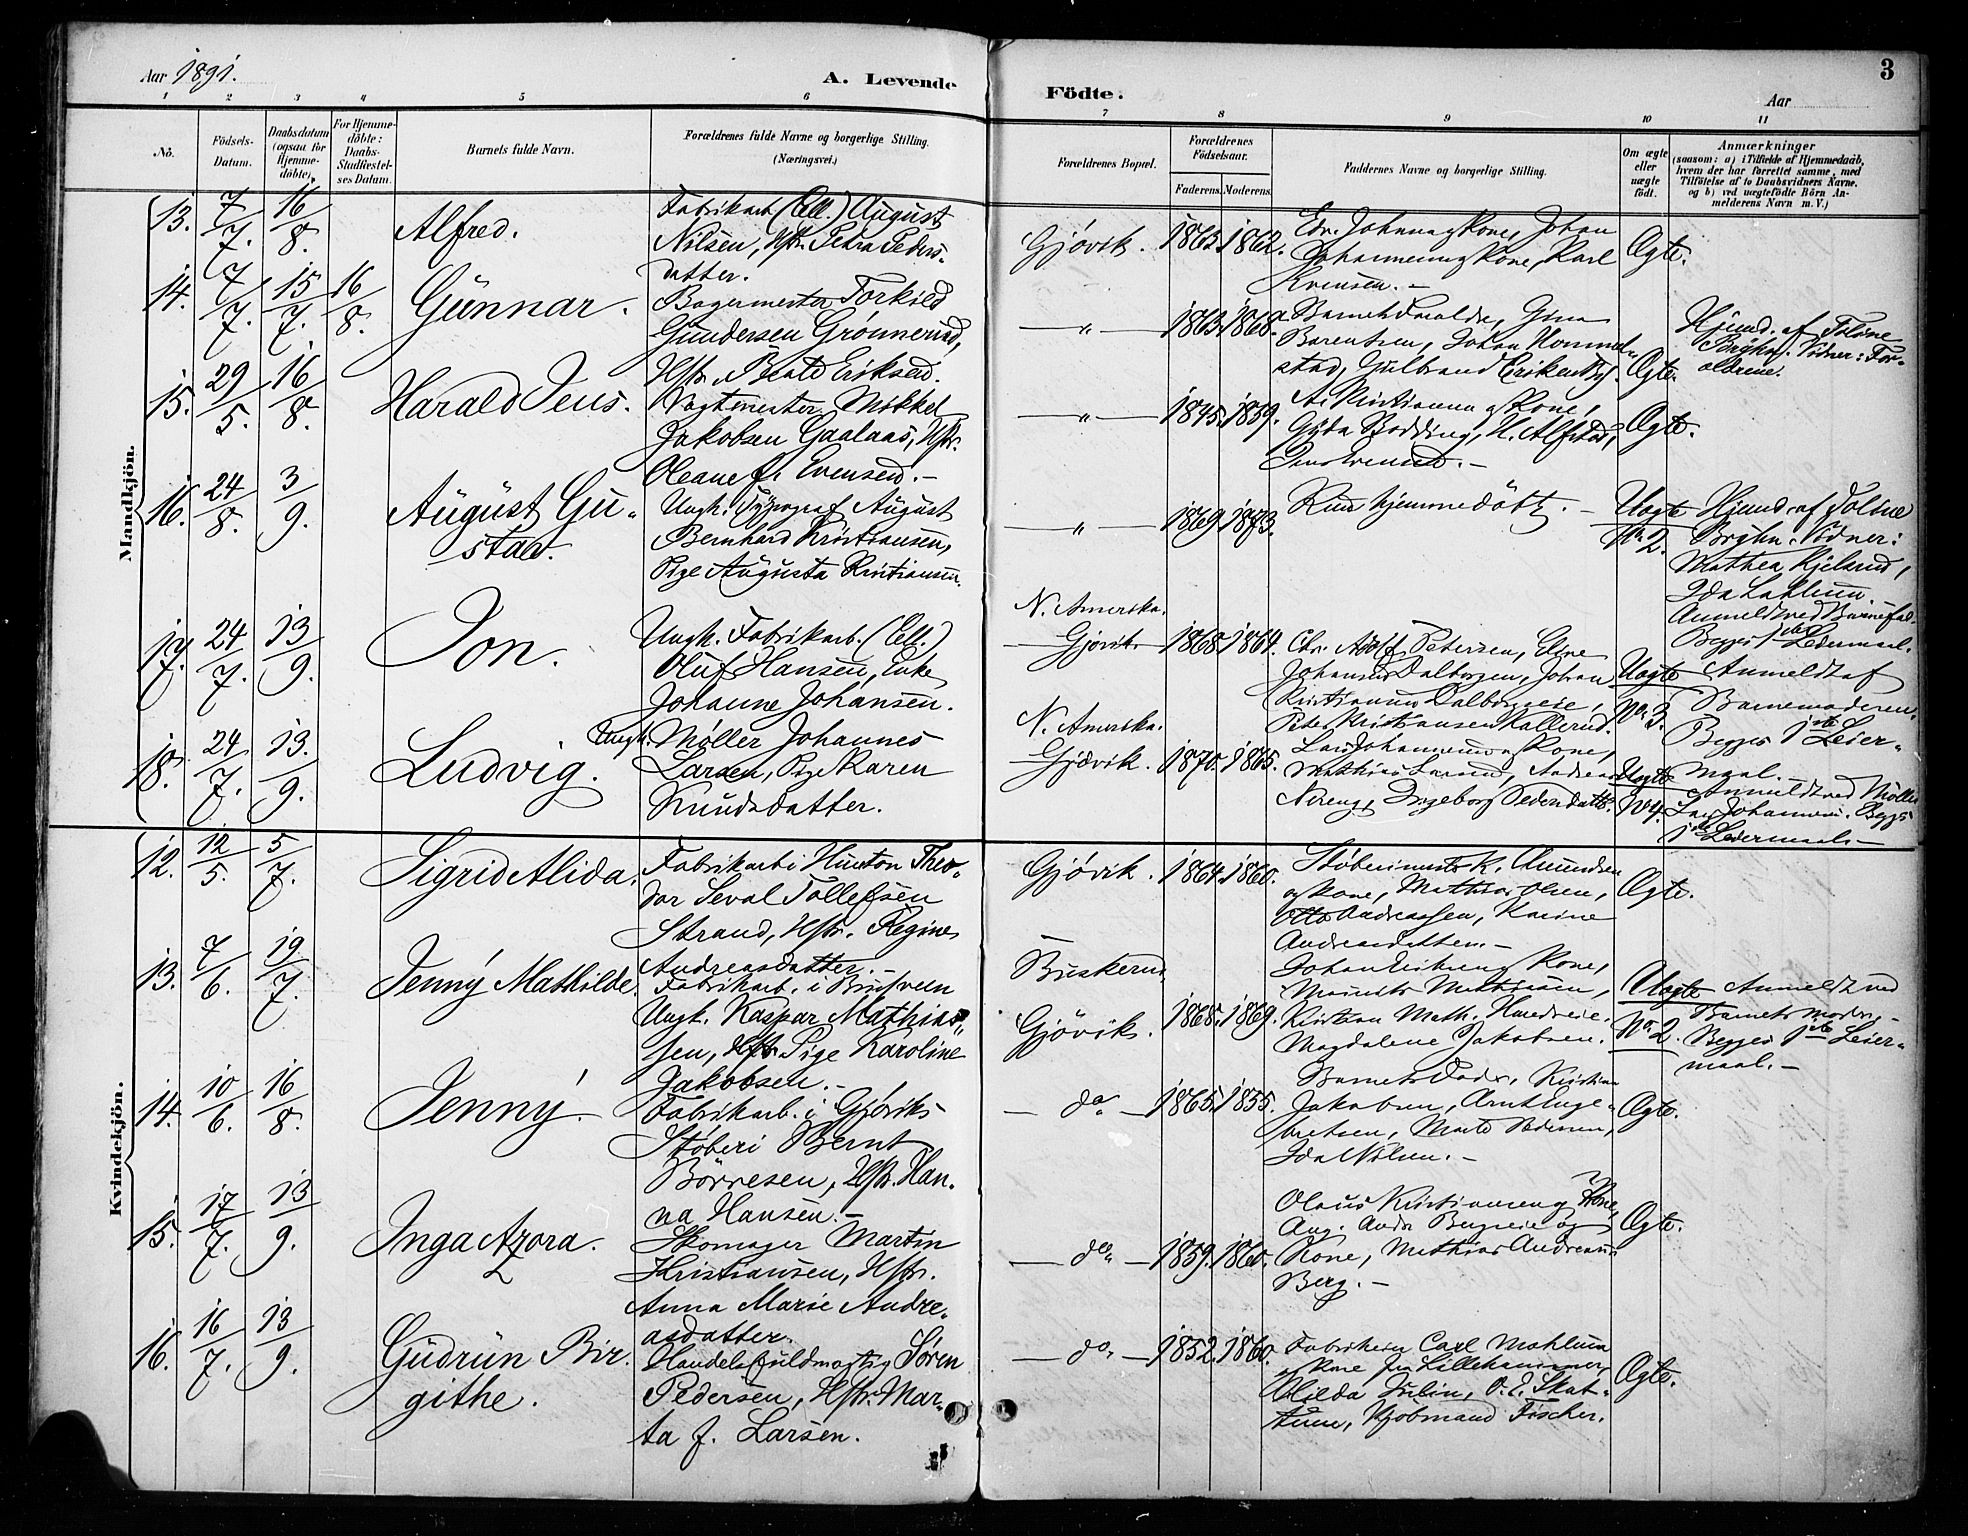 Aar 1891.
A. Levende
Födte.
3
Aar
1 2 3 4 5 6 7 8 9 10 11
No.
Födsels-
Datum.
Daabsdatum
(ogsaa for
Hjemme-
döbte).
For Hjemme-
döbte:
Daabs-
Stadfæstel-
ses Datum.
Barnets fulde Navn.
Forældrenes fulde Navne og borgerlige Stilling.
(Næringsvei.)
Forældrenes Bopæl.
Forældrenes
Födselsaar.
Faderens. Moderens.
Faddernes Navne og borgerlige Stilling.
Om ægte
eller
uægte
födt.
Anmærkninger
(saasom: a) i Tilfælde af Hjemmedaab,
hvem der har forrettet samme, med
Tilföielse af to Daabsvidners Navne,
og b) ved uægtefödt Börn An-
melderens Navn m. V.)
Mandkjön.
13. 7/7. 16/8. Alfred.
Fabrikarb. (Cell.) August
Nilsen, Hstr. Petra Peders-
datter.
Gjövik. 1862.
Johan
Kone, Karl
Evensen. –
Ægte.
14. 7/7. 15/7. 16/8. Gunnar.
Bagermester Torkild
Gundersen Grønnerud,
Hstr. Beate Eriksen.
– " – 1863. 1868.
Barnets Forældre, Gina
Barentsen, Johan Hommel-
stad, Gulbrand Eriksen
Ægte.
Hjmd. af Toline
Vidner: For-
ældrene.
15. 29/5. 16/8. Harald Jens.
Vagtmester Mikkel
Jakobsen Gaalaas, Hstr.
Oleane f. Evensen. –
– " – 1845. 1859.
Kristiansen og Kone,
Gyda Bodding, H. Alfstad,
Ægte.
16. 24/8. 3/9. August Gu-
stav.
Ungk. Typograf August
Bernhard Kristiansen,
Pige Augusta Kristiansen.
– " – 1869. 1873.
Kun hjemmedöbt. –
Uægte
No. 2.
Hjmd. af Toline
Vidner:
Mathea Kjelsrud,
Ida
Anmeldt ved Barnefad.
Begges 1ste Leiermaal.
17. 24/7. 13/9. Jon.
Ungk. Fabrikarb. (Cell.)
Oluf Hansen, Enke
Johanne Johansen.
N. Amerika.
Gjövik. 1868. 1864.
Chr. Adolf Petersen, Eline
Johansen Dalborgen, Johan
Kristiansen Dalborgeie,
Kristiansen Kallerud.
Uægte
No. 3.
Anmeldt af
Barnemoderen.
Begges 1ste Leier-
maal. –
18. 24/7. 13/9. Ludvig.
Ungk. Møller Johannes
Larsen, Pige Karen
Knudsdatter.
N. Amerika.
Gjövik. 1870. 1865.
Lars Johannesen og Kone,
Mathias
Ingeborg Pedersdatter
Uægte
No. 4.
Anmeldt ved Møller
Lars Johannesen. Begges
1ste Leiermaal. –
Kvindekjön.
12. 12/5. 5/7. Sigrid Alida.
Fabrikarb. i Hunton Theo-
dor Seval Tollefsen
Strand, Hstr. Regine
Andreasdatter. –
Gjövik. 1864. 1860.
Støberimester K. Amundsen
og Kone, Mathias Olsen,
Otto Andreassen, Karine
Andreasdatter. –
Ægte.
13. 7/6. 19/7. Jenny Mathilde.
Fabrikarb. i Brusveen
Ungk. Kaspar Mathias-
sen, Pige Karoline
Jakobsen. –
Buskerud,
Gjövik. 1868. 1869.
Kone,
Mathisen,
Kristian Math.
Magdalene Jakobsen.
Uægte
No. 2.
Anmeldt ved
Barnets moder. –
Begges 1ste Leier-
maal. –
14. 10/6. 16/8. Jenny.
Fabrikarb. i Gjøviks
Støberi Bernt
Börresen, Hstr. Han-
na Hansen. –
– do – 1865. 1855.
Barnets Fader, Kristian
Jakobsen, Arnt Enge-
bretsen, Marte Pedersen,
Ida Nilsen. –
Ægte.
15. 17/7. 13/9. Inga Azora.
Skomager Martin
Kristiansen, Hstr.
Anna Marie Andre-
asdatter.
– do – 1859. 1860.
Olaus Kristiansen og Kone,
Aug. Andr. og
Kone, Mathias Andreas
Berg. –
Ægte.
16. 16/7. 13/9. Gudrun Bir-
githe.
Handelsfuldmægtig Søren
Pedersen, Hstr. Mar-
ta f. Larsen.
– do – 1852. 1860.
Fabrikeier Carl Mæhlum
og Kone fra Lillehammer,
Alida Julin, O. E. Skat-
tum, Kjøbmand Fischer.
Ægte.